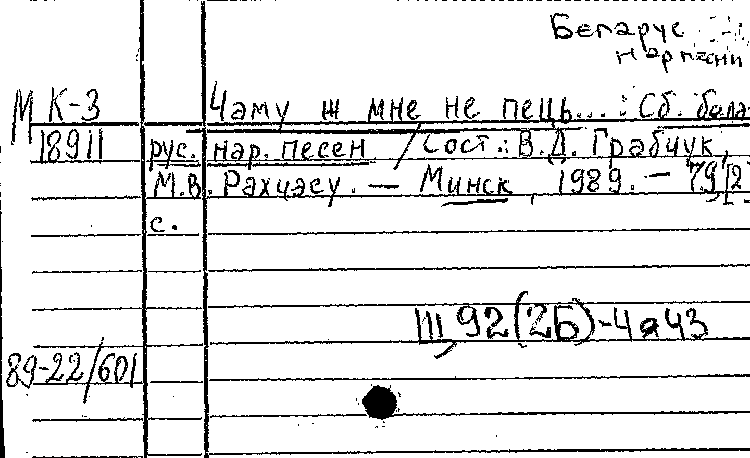 Беларус
нар песни
М К-3 Чаму ж мне не пець... : Сб. бела
18911 рус. нар. песен / Сост.: В.Д. Грабчук,
М.В. Рахчасу. — Минск, 1989. — 79, [2]
с.
Ш 92(2Б)-4я43
89-22/601